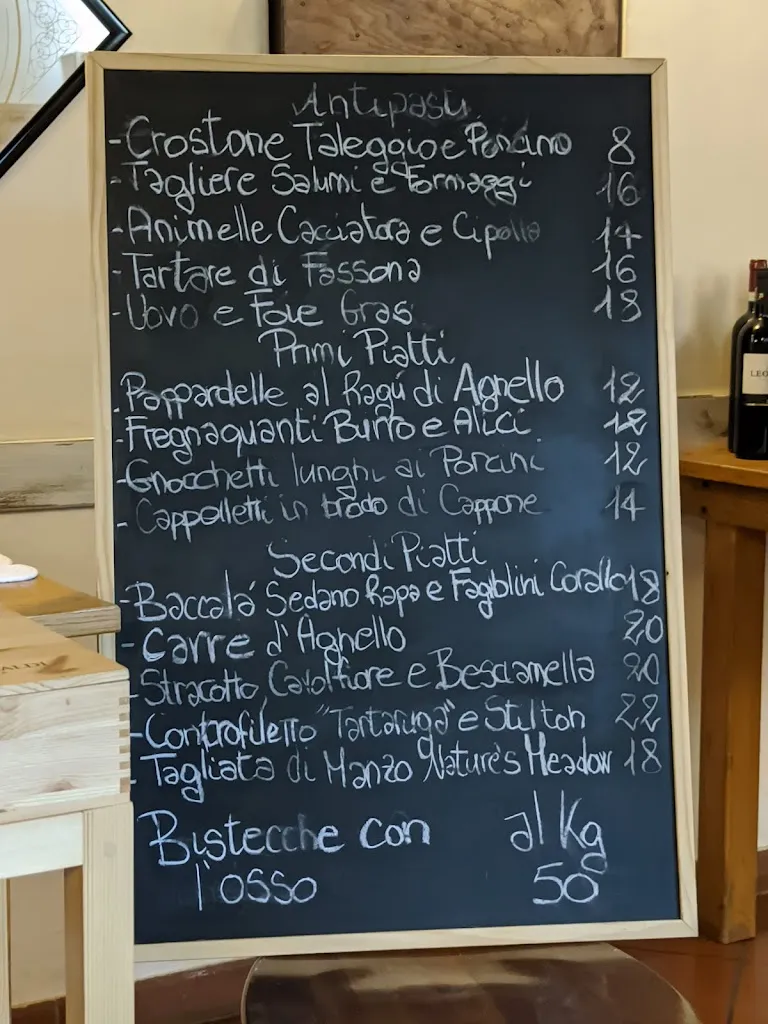 Antipasti
- Crostone Taleggio e Porcino 8
- Tagliere Salumi e Formaggi 16
- Animelle Cacciatora e Cipolla 14
- Tartare di Fassona 16
- Uovo e Foie Gras 18
Primi Piatti
- Pappardelle al Ragú di Agnello 12
- Fregnaquanti Burro e Alici 12
- Gnocchetti lunghi ai Porcini 12
- Cappelletti in brodo di Cappone 14
Secondi Piatti
- Baccalá Sedano Rapa e Fagiolini Corallo 18
- Carre d'Agnello 20
- Stracotto Cavolfiore e Besciamella 20
- Controfiletto "Tartaruga" e Stilton 22
- Tagliata di Manzo Nature's Meadow 18
Bistecche con al Kg
l'osso 50
LEO